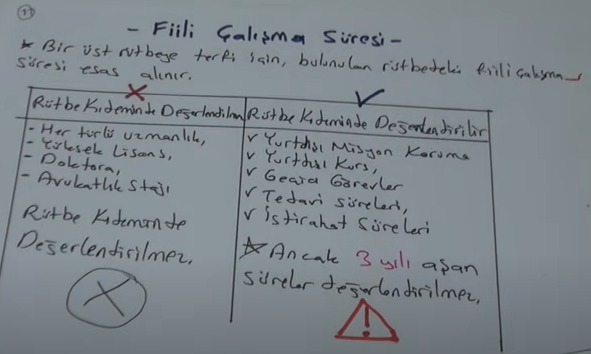 11
- Fiili Çalışma Süresi -
* Bir üst rütbeye terfi için, bulunulan rütbedeki fiili çalışma
süresi esas alınır.
Rütbe Kıdeminde Değerlendirilmez
- Her türlü uzmanlık,
- Yüksek Lisans,
- Doktora,
- Avukatlık Stajı
Rütbe Kıdeminde
Değerlendirilmez.
Rütbe Kıdeminde Değerlendirilir
✓ Yurtdışı Misyon Koruma
✓ Yurtdışı Kurs,
✓ Geçici Görevler
✓ Tedavi Süreleri,
✓ İstirahat Süreleri
* Ancak 3 yılı aşan
süreler değerlendirilmez.